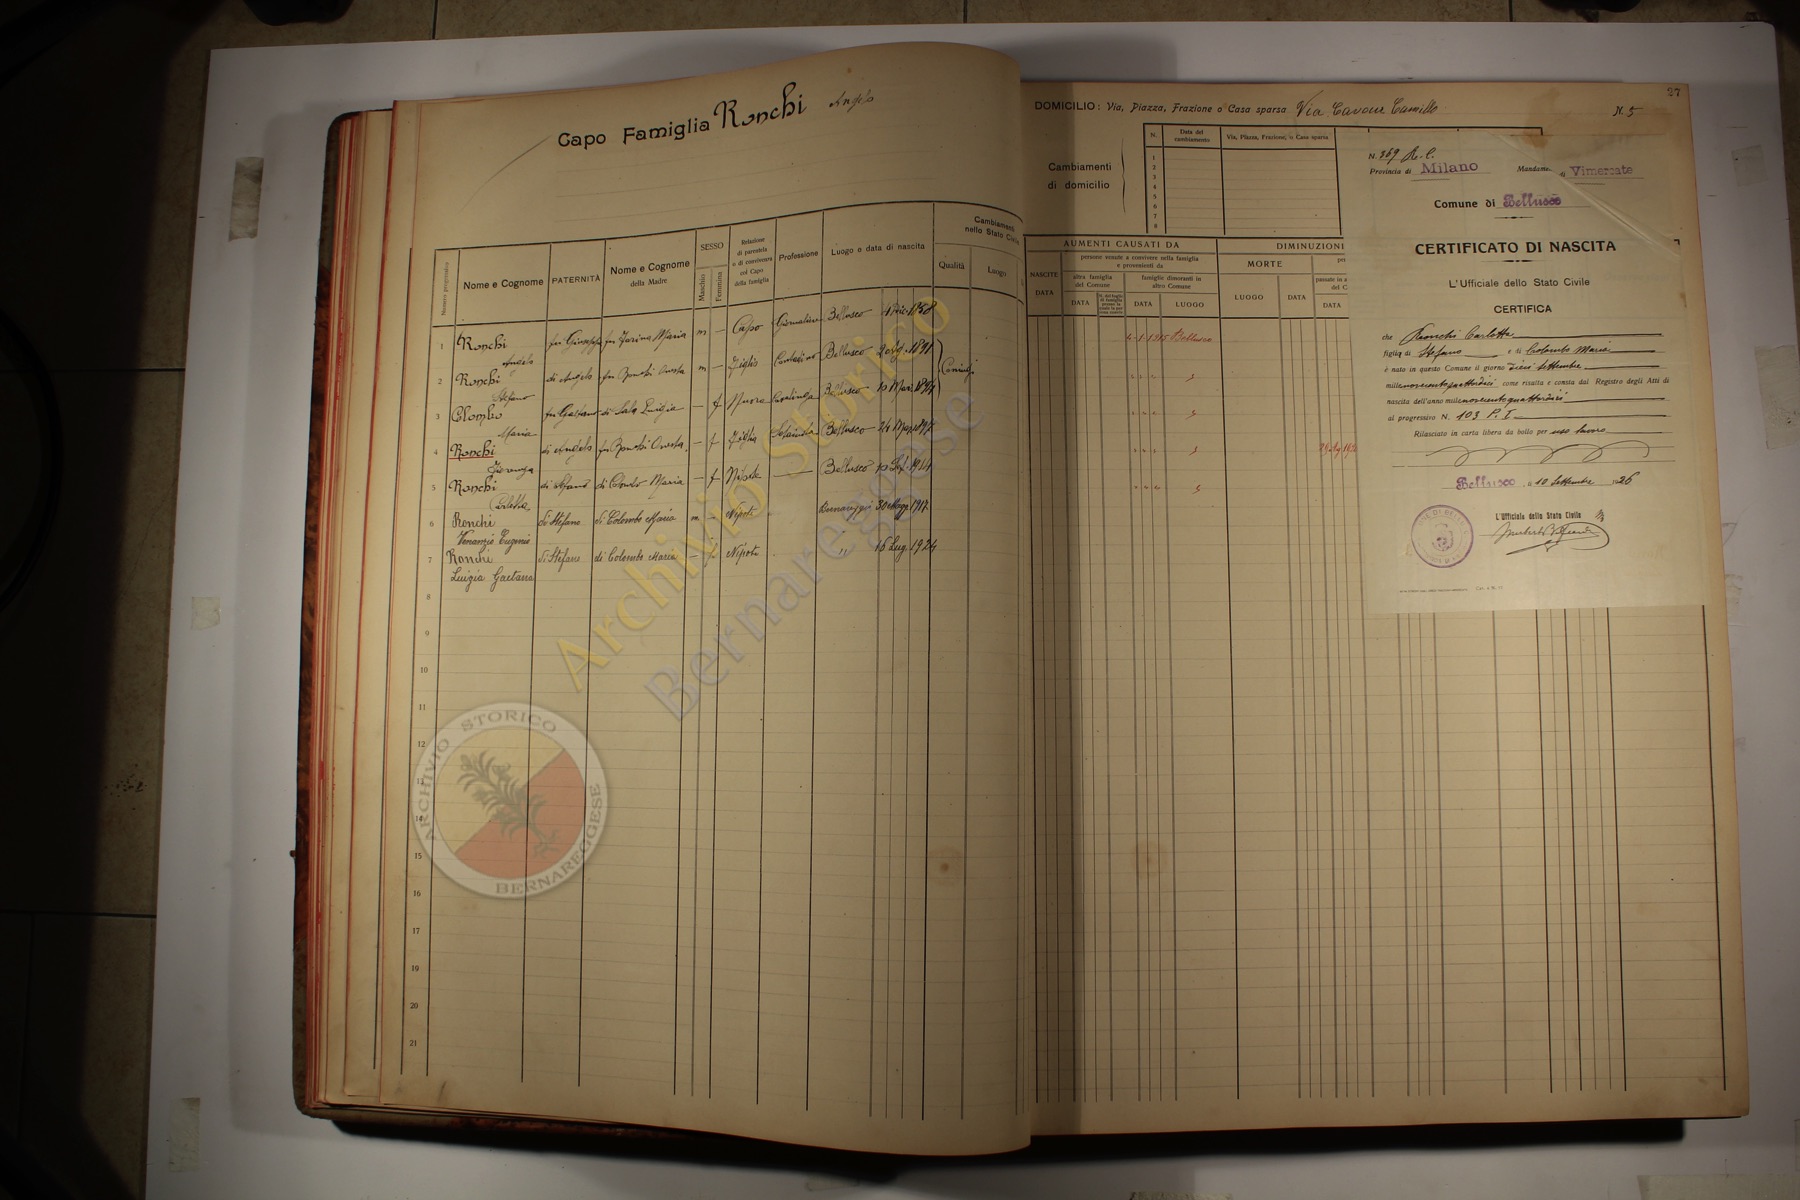 Capo Famiglia Ronchi Angelo
Numero progressivo
Nome e Cognome
PATERNITÀ
Nome e Cognome della Madre
SESSO
Maschio
Femmina
Relazione di parentela o di convivenza col Capo della famiglia
Professione
Luogo e data di nascita
Cambiamenti nello Stato Civile
Qualità
Luogo
1 Ronchi Angelo fu Giuseppe fu Maria m — Capo Bellusco 1858
2 Ronchi Stefano di Angelo fu Ronchi m — Figlio Contadino Bellusco 1891
Coniugi
3 Colombo Maria fu Gaetano di Sala Luigia — f Nuora Casalinga Bellusco 10 Mar. 1894
4 Ronchi di Angelo fu Ronchi — f Figlia Bellusco 24 Mag. 1897
5 Ronchi Carlotta di Stefano di Colombo Maria — f Nipote — Bellusco 10 Set. 1914
6 Ronchi Venanzio Eugenio di Stefano di Colombo Maria m — Nipote Bernareggio 30 Magg. 1917
7 Ronchi Luigia Gaetana di Stefano di Colombo Maria — f Nipote " 16 Lug. 1924
8
9
10
11
12
13
14
15
16
17
18
19
20
21
27
DOMICILIO: Via, Piazza, Frazione o Casa sparsa Via Cavour Camillo N. 5
Cambiamenti di domicilio
N.
Data del cambiamento
Via, Piazza, Frazione, o Casa sparsa
1
2
3
4
5
6
7
8
AUMENTI CAUSATI DA
DIMINUZIONI
NASCITE
DATA
persone venute a convivere nella famiglia e provenienti da
altra famiglia del Comune
famiglie dimoranti in altro Comune
DATA
DATA
LUOGO
MORTE
LUOGO
DATA
DATA
4-1-1915 Bellusco
N. 369 R. C.
Provincia di Milano
di Vimercate
Comune di Bellusco
CERTIFICATO DI NASCITA
L'Ufficiale dello Stato Civile
CERTIFICA
che Ronchi Carlotta
figlia di Stefano e di Colombo Maria
è nato in questo Comune il giorno dieci settembre
millenovecentoquattordici come risulta e consta dal Registro degli Atti di
nascita dell'anno millenovecentoquattordici
al progressivo N. 103 P. I
Rilasciato in carta libera da bollo per uso lavoro
Bellusco, 10 Settembre 1926
L'Ufficiale dello Stato Civile
Archivio Storico
Bernareggese
ARCHIVIO STORICO
BERNAREGGESE